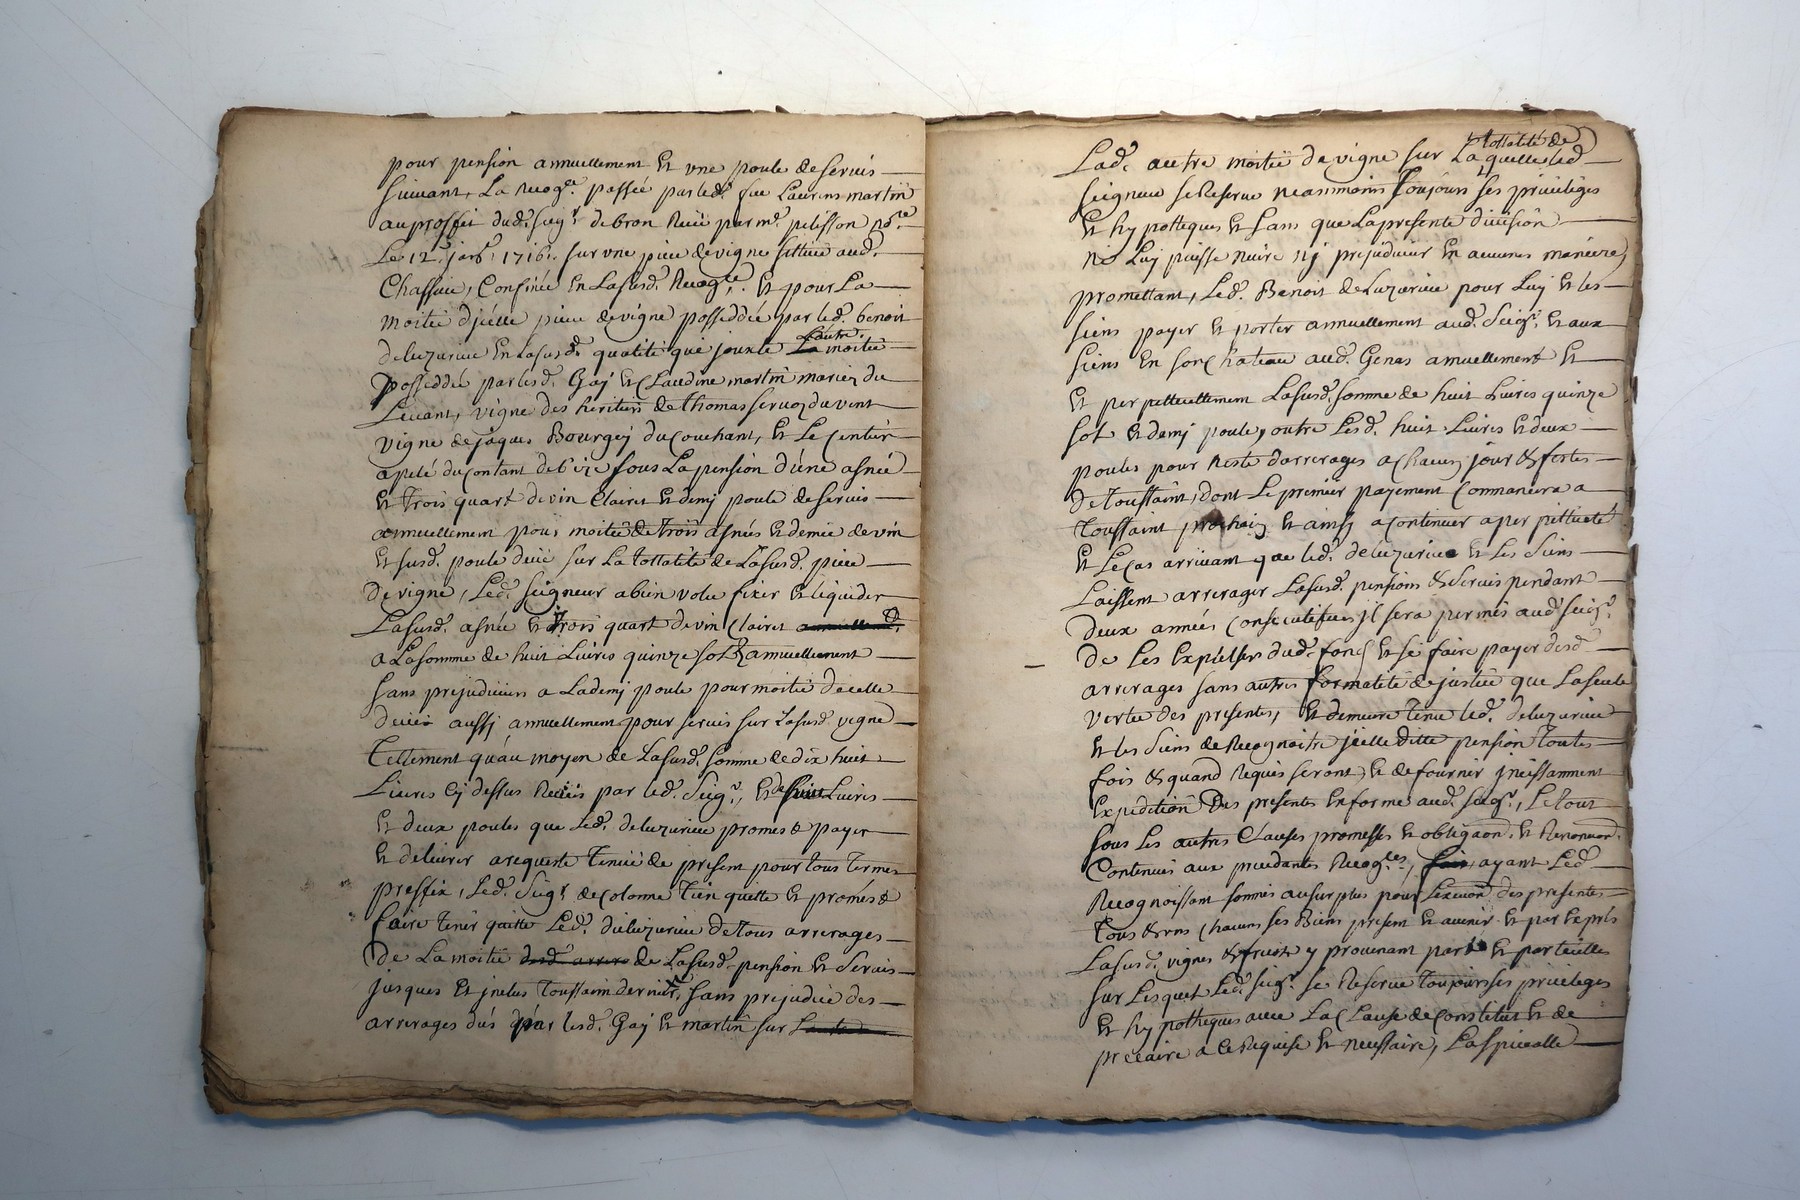 pour pension annuellement Et une poule de servis
suivant, La Recog.ce passée par led.t feu Laurens martin
au proffit dud.t seig.r de bron Receue par m.e pelisson no.re
Le 12.e janv.r 1716. sur une piece de vigne scittuée aud.
Chassieu, Confinée En Lasusd.e Recog.ce. Et pour La
moitié d'jcelle piece de vigne possedée par led.t benoit
deluzurieu En lasusd.e qualité qui jouxte L'autre moitié
Possedée par lesd. Gaj Et Claudine martin mariez du
Levant, vigne des heritiers de thomas servoz du vent
vigne de jaques Bourgej du Couchant, Et Le Centier
apelé du Contant de bize sous La pension d'une asnée
Et trois quart de vin Clairet Et demj poule de servis
annuellement pour moitié de trois asnées Et demie de vin
Et susd. poule deue sur La tottalité de Lasusd. piece
De vigne, Led.t seigneur a bien volu fixer Et liquider
Lasusd. asnée Et Trois quart de vin Clairet
a La somme de huit Livres quinze sols annuellement
sans prejudicier a La demj poule pour moitié de celle
deues aussj annuellement pour servis sur Lasusd. vigne
Tellement qu'au moyen de Lasusd. somme de dix huit
Livres Cj dessus Receues par led.t Seig.r, Et Livres
Et deux poules que Led.t deluzurieu promest payer
Et delivrer a requeste tenue de present pour tous termes
preffix, Led.t Seig.r de Colonne Tien quitte Et promest
faire tenir quitte Led.t deluzurieu de tous arrerages
De La moitié desd. arrera de Lasusd. pension Et Servis
jusques Et jnclus Toussaint dernier, sans prejudice des
arrerages dus par lesd. Gaj Et martin sur L'autre
Lad.e autre moitié de vigne sur La tottalité de quelle led.
seigneur se Reserve neanmoins Toujours ses privileges
Et hypotheques Et sans que La presente division
ne Luj puisse nuire nj prejudicier En aucunes manieres
promettant, Led.t Benoit de Luzurieu pour Luj Et les
siens payer Et porter annuellement aud.t Seig.r Et aux
siens En son Chateau aud.t Genas annuellement Et
Et perpettuellement Lasusd. somme de huit Livres quinze
sols Et demj poule, outre Lesd. huit Livres Et deux
poules pour Reste darrerages a chacun jour & festes
de Toussaint, dont Le premier payement Commancera a
Toussaint prochain Et ainsj a Continuer a perpettuité
Et Le Cas arrivant que led.t deluzurieu Et Les Siens
Laissent arrerager Lasusd. pensions & servis pendant
deux années Consecutifves jl sera permis aud.t Seig.r
De Les Expulser dud.t fond Et se faire payer desd.
arrerages sans autres formalité de justice que La seule
vertu des presentes, Et demeure tenu led.t deluzurieu
Et les Siens de Recognoitre jcelle ditte pension Toutes
fois & quand Requis seront, Et de fournir jncessamment
Expedition Des presentes En forme aud.t seig.r, Le tout
sous Les autres Clauses promesses Et obligaon.s Et Renonciaon.
Contenues aux precedantes Recog.ces, ayant Led.t
Recognoissant soumis au surplus pour Lexecuon des presentes
Tous & uns Chacuns ses Biens present Et avenir Et par Exprés
Lasusd. vignes & fruits y provenant par Et parteuelles
sur Lesquels Led.t seig.r se Reserve toujours ses privileges
Et hypotheques avec La Clause de Constitut Et de
precaire a Ce Requise Et necessaire, La specialle